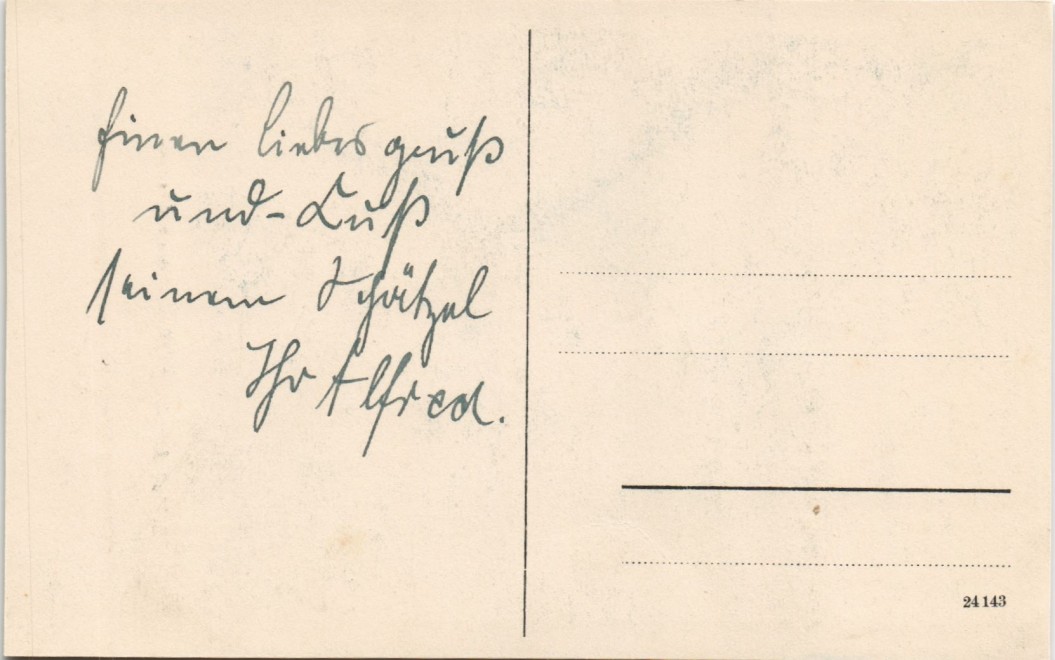 Einen liebesgruß
und-Kuß
seinem Schätzel
Ihr Alfred.
24 143